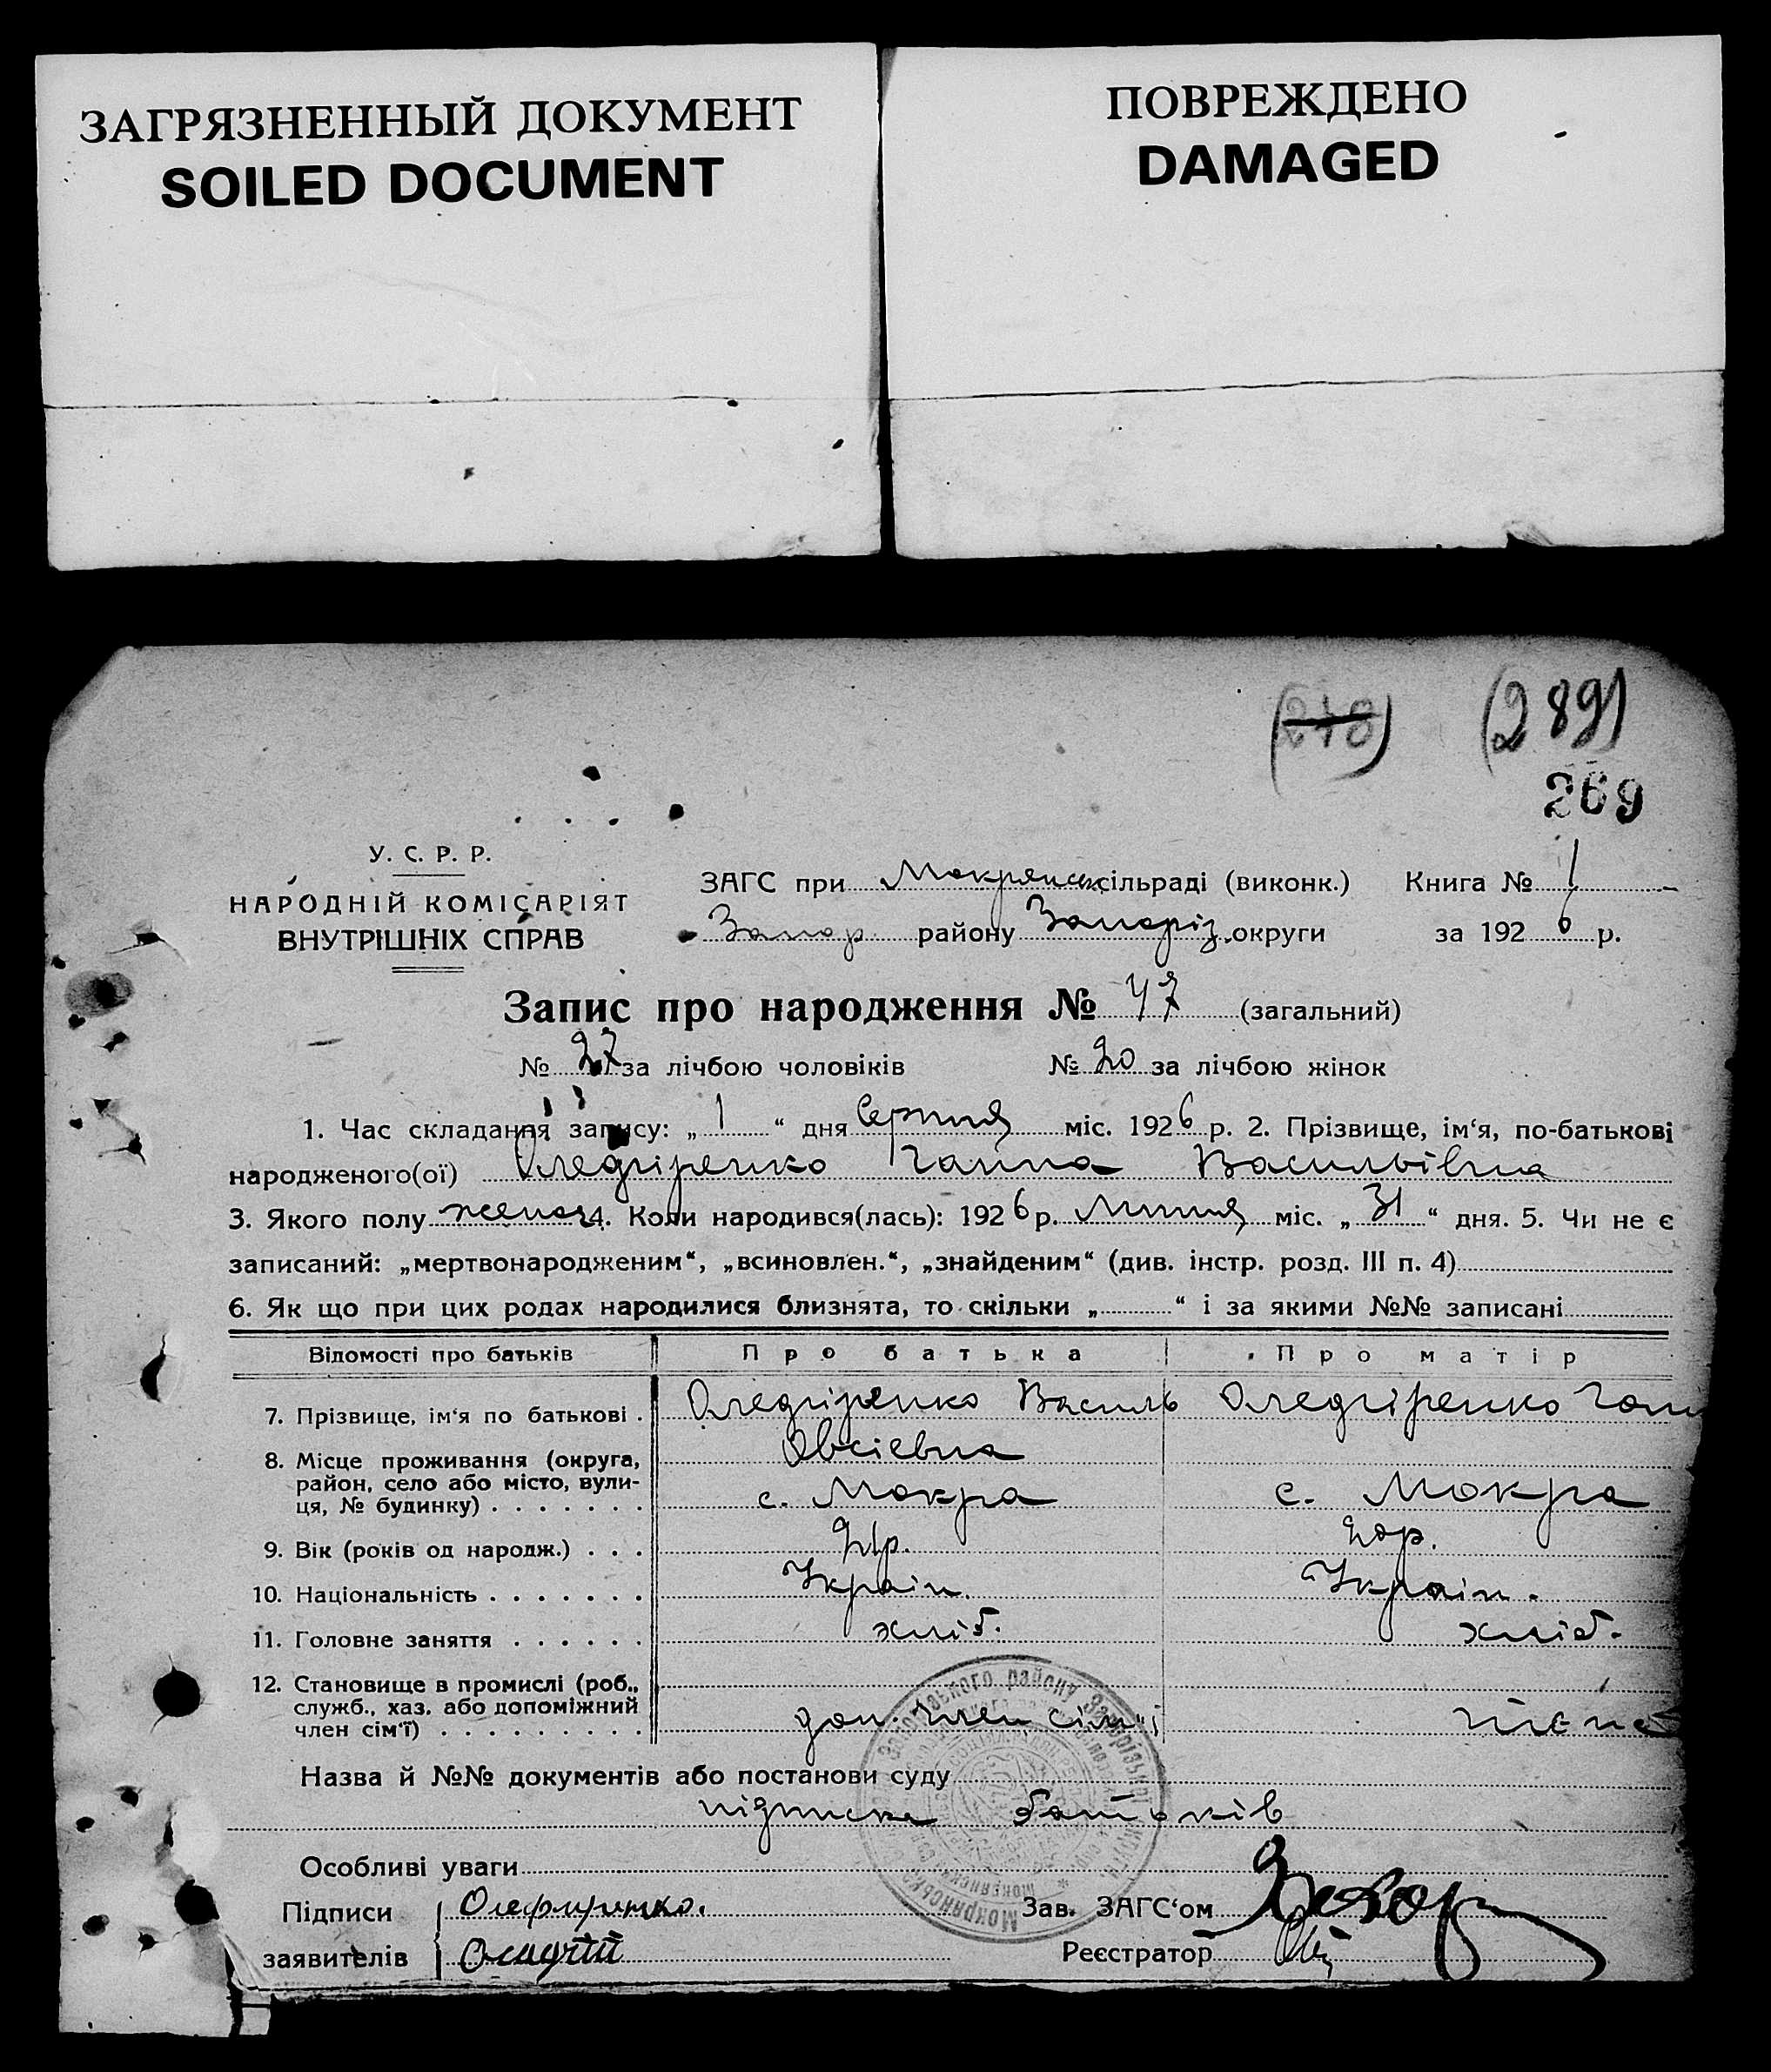 ЗАГРЯЗНЕННЫЙ ДОКУМЕНТ
SOILED DOCUMENT
ПОВРЕЖДЕНО
DAMAGED
(278) (289)
269
У. С. Р. Р.
НАРОДНІЙ КОМІСАРІЯТ
ВНУТРІШНІХ СПРАВ
ЗАГС при Мокрянск сільраді (виконк.) Книга № 1
Запор. району Запоріз. округи за 1926 р.
Запис про народження № 47 (загальний)
№ 27 за лічбою чоловіків № 20 за лічбою жінок
1. Час складання запису: „1“ дня Серпня міс. 1926 р. 2. Прізвище, ім‘я, по-батькові
народженого(ої) Оледгіренко Ганна Васильівна
3. Якого полу женоч 4. Коли народився(лась): 1926 р. Липня міс. „31“ дня. 5. Чи не є
записаний: „мертвонародженим“, „всиновлен.“, „знайденим“ (див. інстр. розд. III п. 4)
6. Як що при цих родах народилися близнята, то скільки „ “ і за якими №№ записані
Відомості про батьків Про батька Про матір
7. Прізвище, ім‘я по батькові . Оледгіренко Василь Оледгіренко Ганн
Овсієвна
8. Місце проживання (округа,
район, село або місто, вули-
ця, № будинку) . . . . . . . с. Мокра с. Мокра
9. Вік (років од народж.) . . . 21р. 20р.
10. Національність . . . . . . . Україн. Україн.
11. Головне заняття . . . . . . хліб. хліб.
12. Становище в промислі (роб.,
служб., хаз. або допоміжний
член сім‘ї) . . . . . . . . . доп. член сім"ї
Назва й №№ документів або постанови суду
підписка батьків
Особливі уваги
Підписи
заявителів
Зав. ЗАГС‘ом
Реєстратор